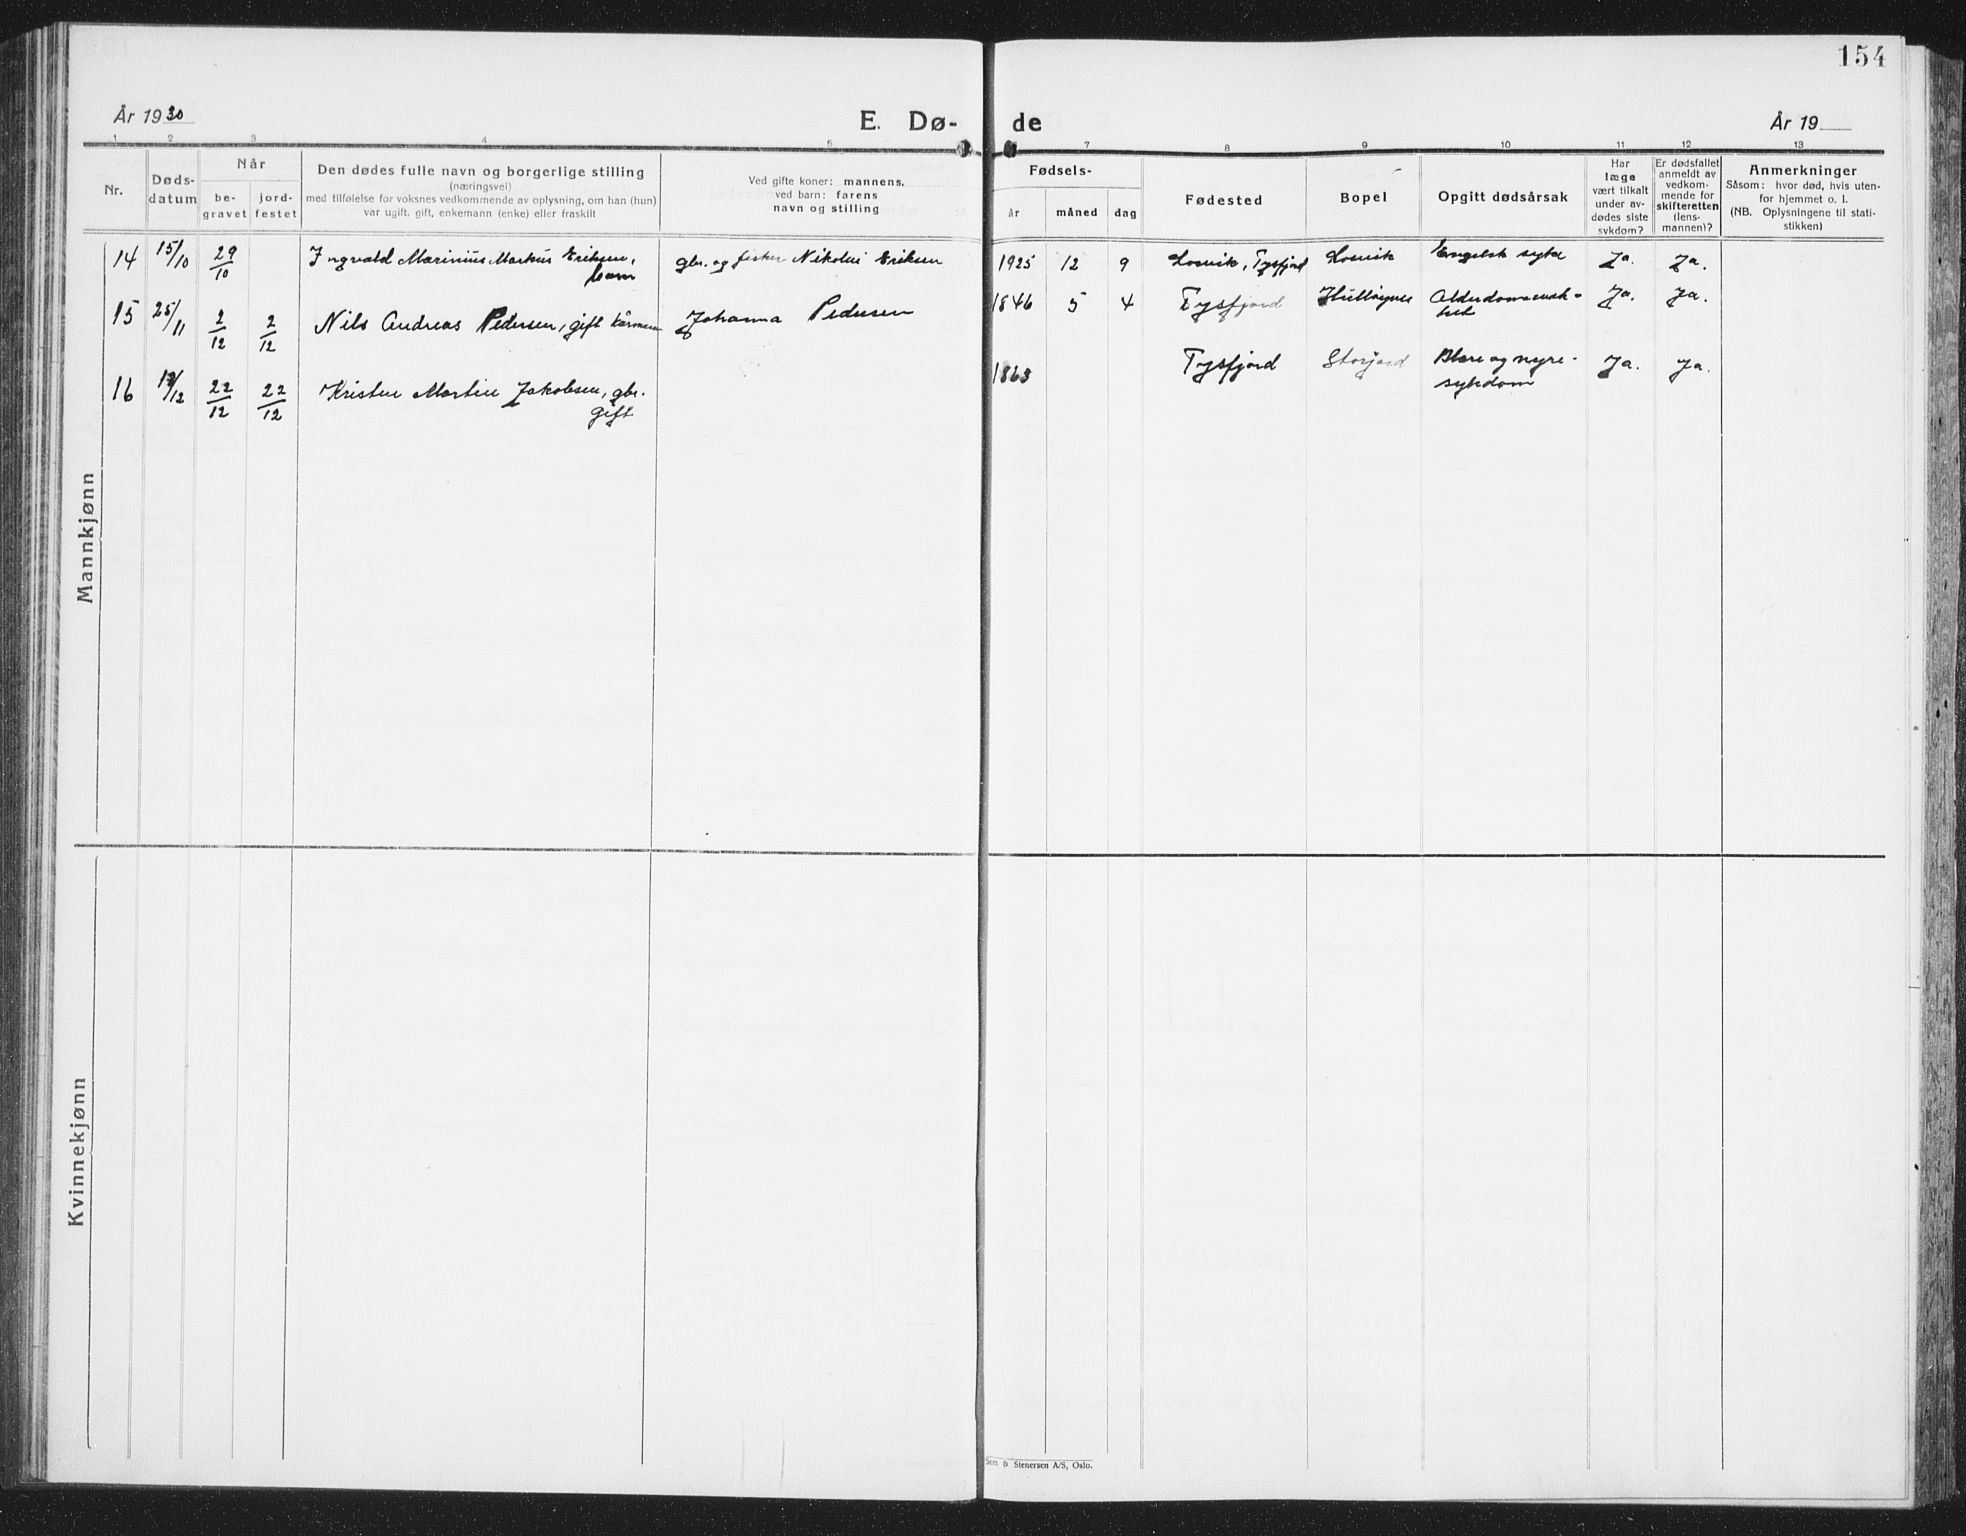 154
År 1930
E. Dø-
de
År 19
1 2 3 4 5 7 8 9 10 11 12 13
Nr.
Døds-
datum
Når
be-
gravet
jord-
festet
Den dødes fulle navn og borgerlige stilling
(næringsvei)
med tilføielse for voksnes vedkommende av oplysning, om han (hun)
var ugift, gift, enkemann (enke) eller fraskilt
Ved gifte koner: mannens,
ved barn: farens
navn og stilling
Fødsels-
år
måned
dag
Fødested
Bopel
Opgitt dødsårsak
Har
læge
vært tilkalt
under av-
dødes siste
sykdom?
Er dødsfallet
anmeldt av
vedkom-
mende for
skifteretten
(lens-
mannen)?
Anmerkninger
Såsom: hvor død, hvis uten-
for hjemmet o. l.
(NB. Oplysningene til stati-
stikken)
Mannkjønn
14 15/10 29/10 Ingvald Marinius Markus Eriksen, gbr. og fisker Nikolai Eriksen 1925 12 9 Losvik, Tysfjord Losvik Engelsk syke Ja. Ja.
barn
15 25/11 2/12 2/12 Nils Andreas Pedersen, gift kårmann Johanna Pedersen 1846 5 4 Tysfjord Alderdomssvak-
het Ja. Ja.
16 /12 22/12 22/12 Martin Jakobsen, gbr. 1863 Tysfjord Storjord Blære og nyre-
gift
sykdom Ja. Ja.
Kvinnekjønn
Sem & Stenersen A/S, Oslo.